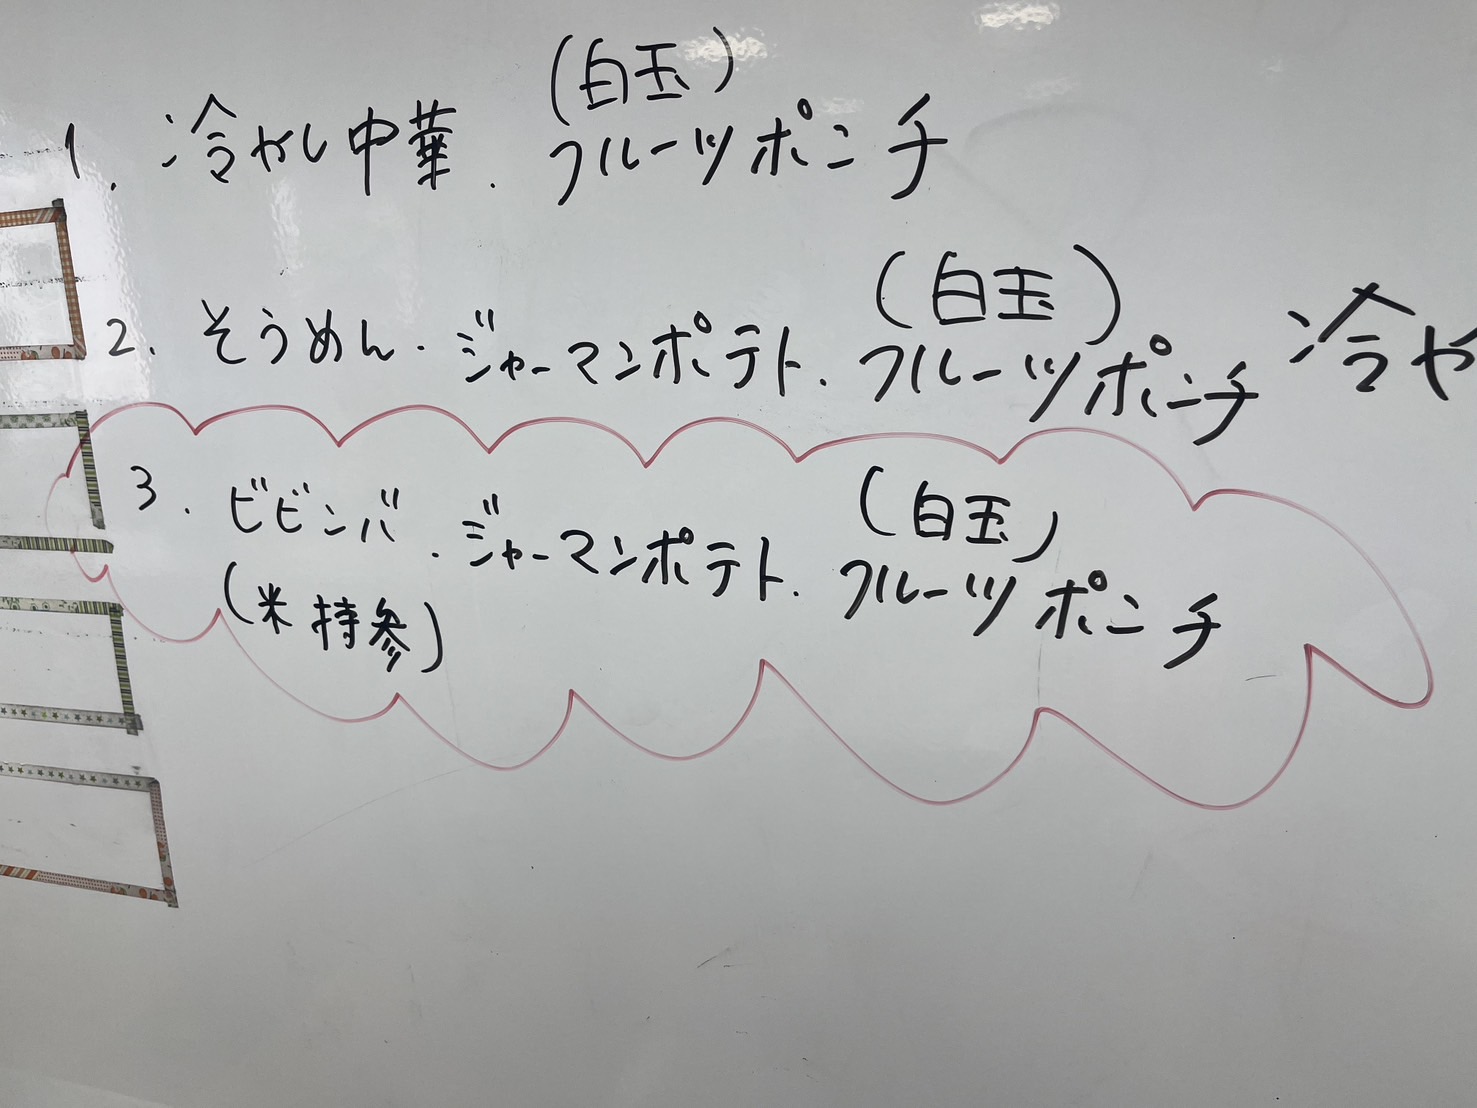 (白玉)
1. 冷やし中華. フルーツポンチ
(白玉)
2. そうめん・ジャーマンポテト. フルーツポンチ 冷や
(白玉)
3. ビビンバ・ジャーマンポテト. フルーツポンチ
(米持参)